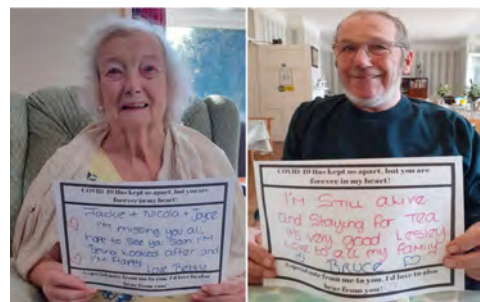 COVID-19 Has kept us apart, but you are
forever in my heart!
Jackie + Nicola + Joyce
I'm missing you all
hope to see you soon I'm
being looked after and
I'm happy
Love Betty
A special note from me to you. I'd love to also
hear from you!
COVID-19 Has kept us apart, but you are
forever in my heart!
I'M STILL alive
and STaying for Tea
it's very good Lesley
Love to all my family
BRUCE
A special note from me to you. I'd love to also
hear from you!